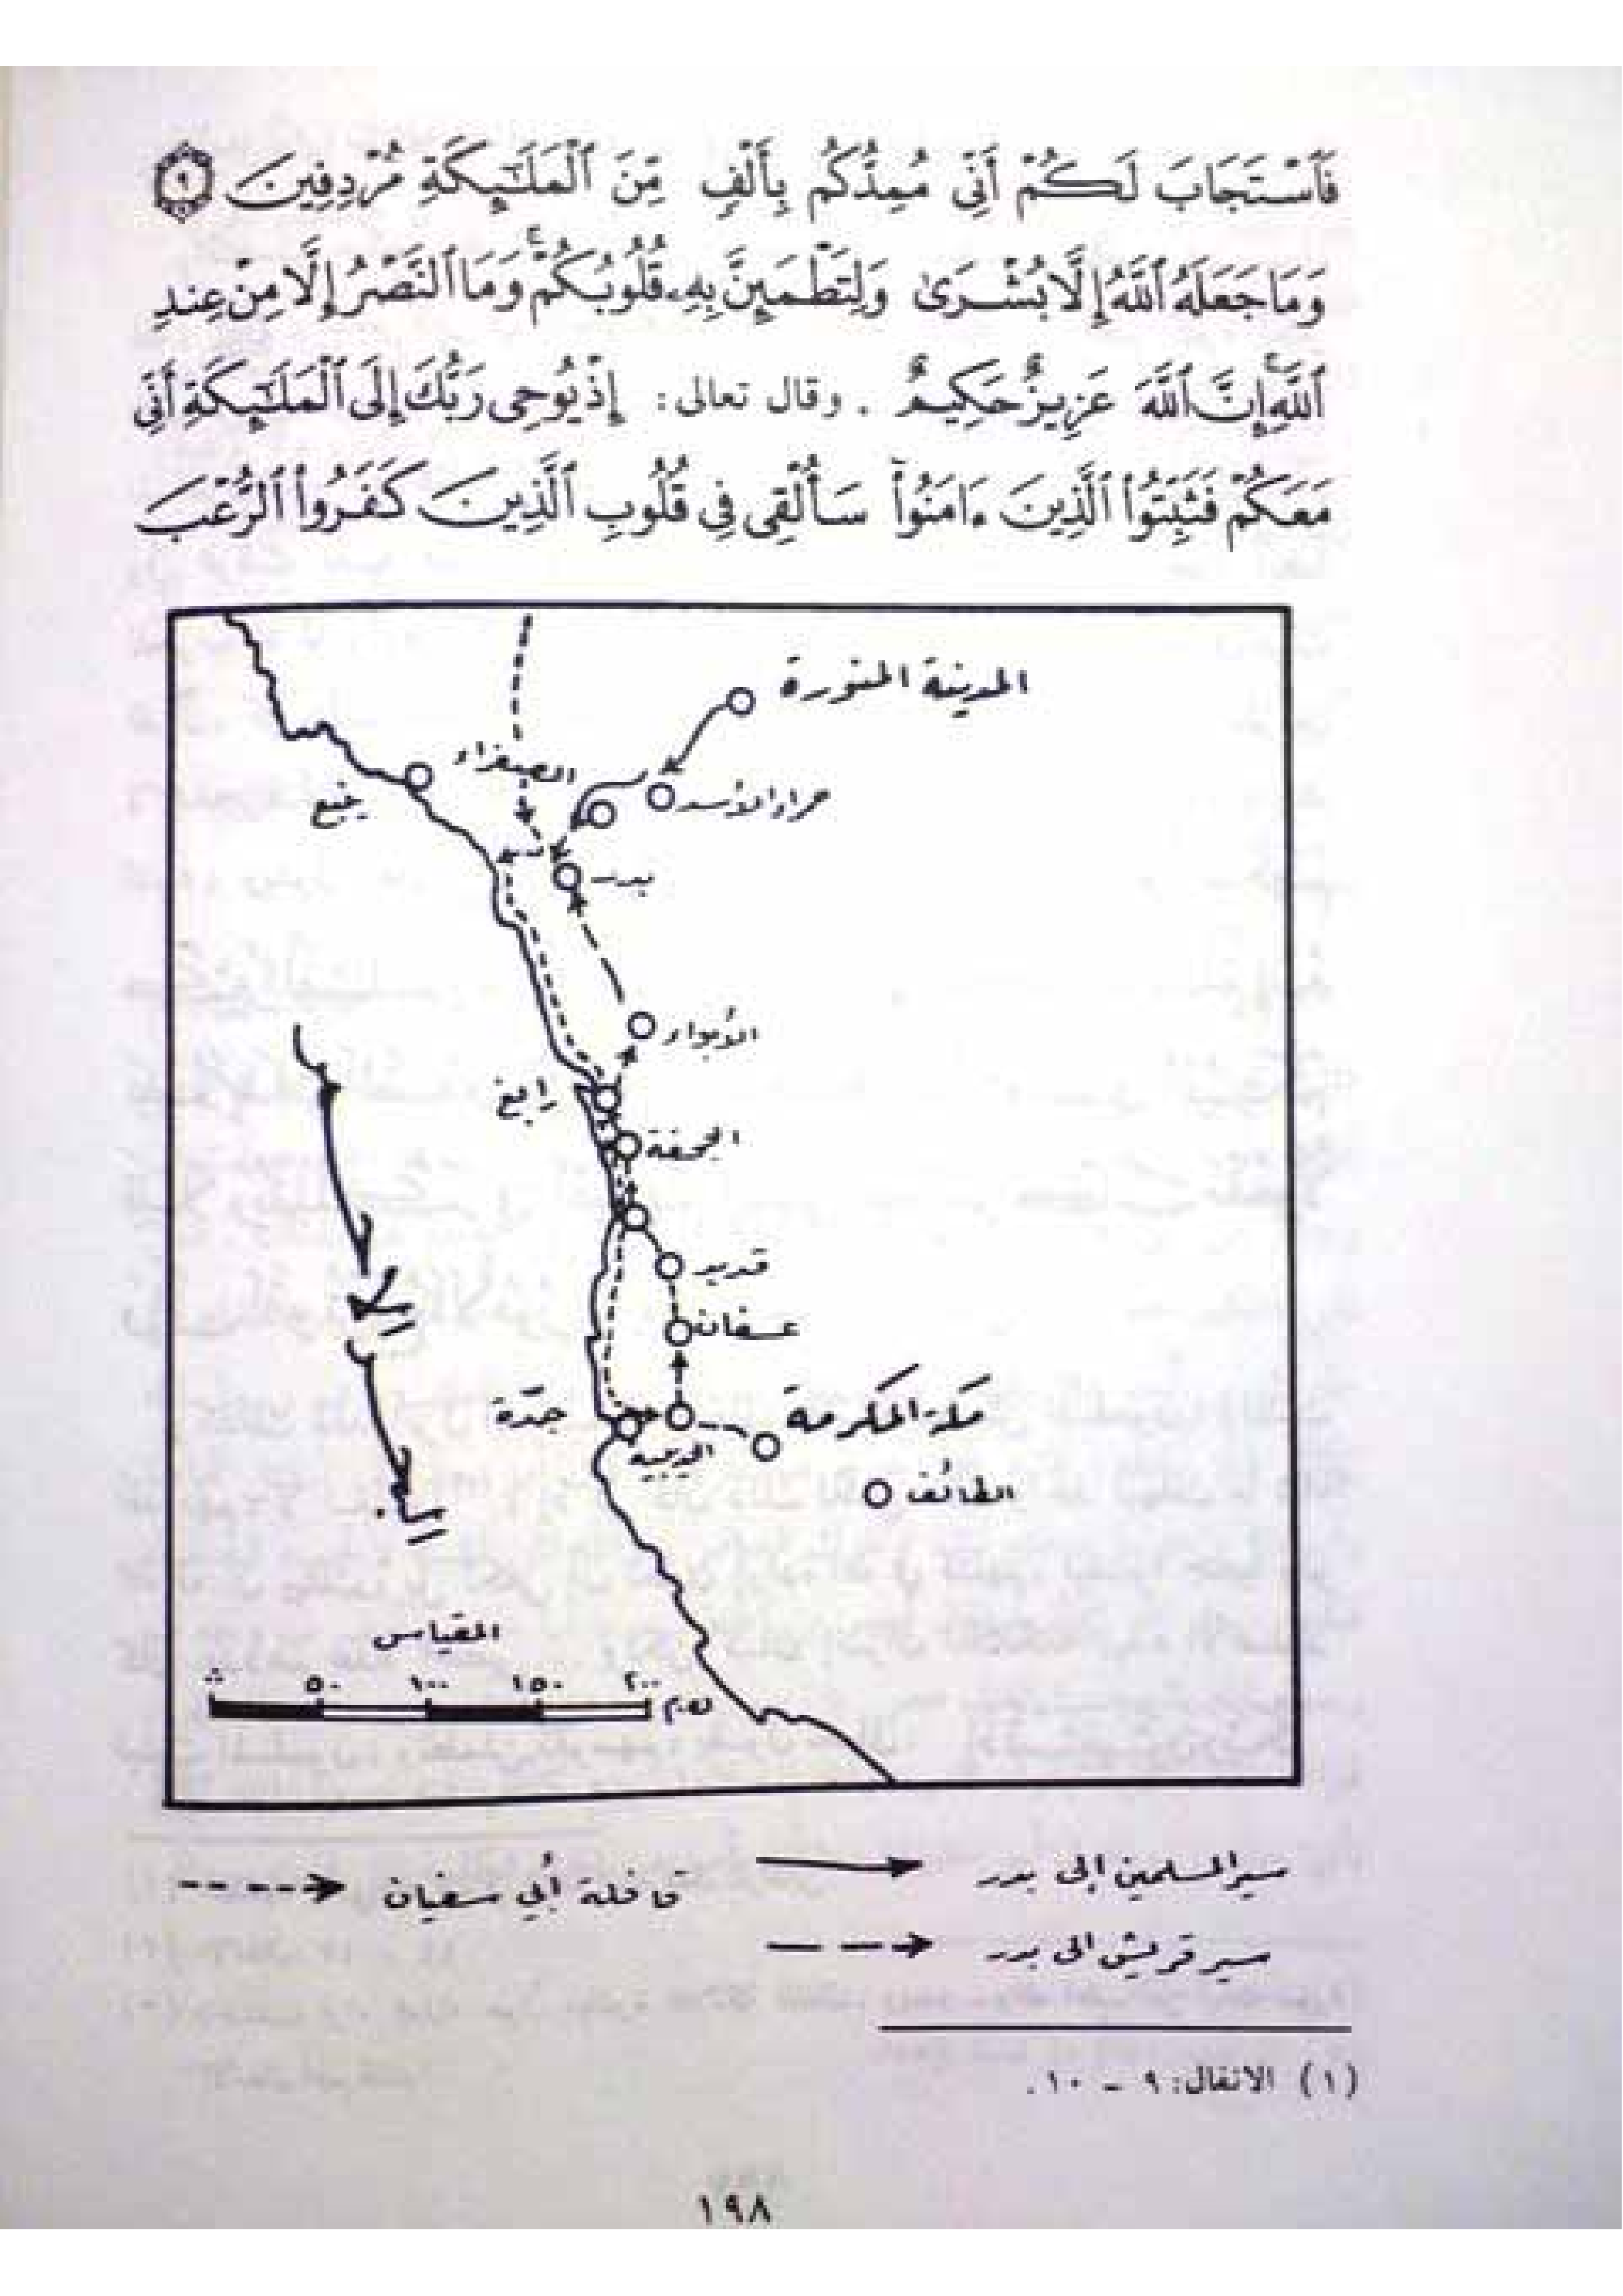 فَٱسْتَجَابَ لَكُمْ أَنِّى مُمِدُّكُم بِأَلْفٍ مِّنَ ٱلْمَلَٰٓئِكَةِ مُرْدِفِينَ ٩
وَمَا جَعَلَهُ ٱللَّهُ إِلَّا بُشْرَىٰ وَلِتَطْمَئِنَّ بِهِۦ قُلُوبُكُمْ ۚ وَمَا ٱلنَّصْرُ إِلَّا مِنْ عِندِ
ٱللَّهِ ۚ إِنَّ ٱللَّهَ عَزِيزٌ حَكِيمٌ . وقال تعالى: إِذْ يُوحِى رَبُّكَ إِلَى ٱلْمَلَٰٓئِكَةِ أَنِّى
مَعَكُمْ فَثَبِّتُوا۟ ٱلَّذِينَ ءَامَنُوا۟ ۚ سَأُلْقِى فِى قُلُوبِ ٱلَّذِينَ كَفَرُوا۟ ٱلرُّعْبَ
المدينة المنورة
الصفراء
حمراء الأسد
ينبع
بدر
الأبواء
رابغ
الجحفة
قديد
عسفان
البحر الأحمر
جدّة
مكة المكرمة
الحديبية
الطائف
المقياس
٥٠ ١٠٠ ١٥٠ ٢٠٠
كم
سير المسلمين إلى بدر
قافلة أبي سفيان
سير قريش الى بدر
(١) الانفال: ٩ - ١٠.
١٩٨